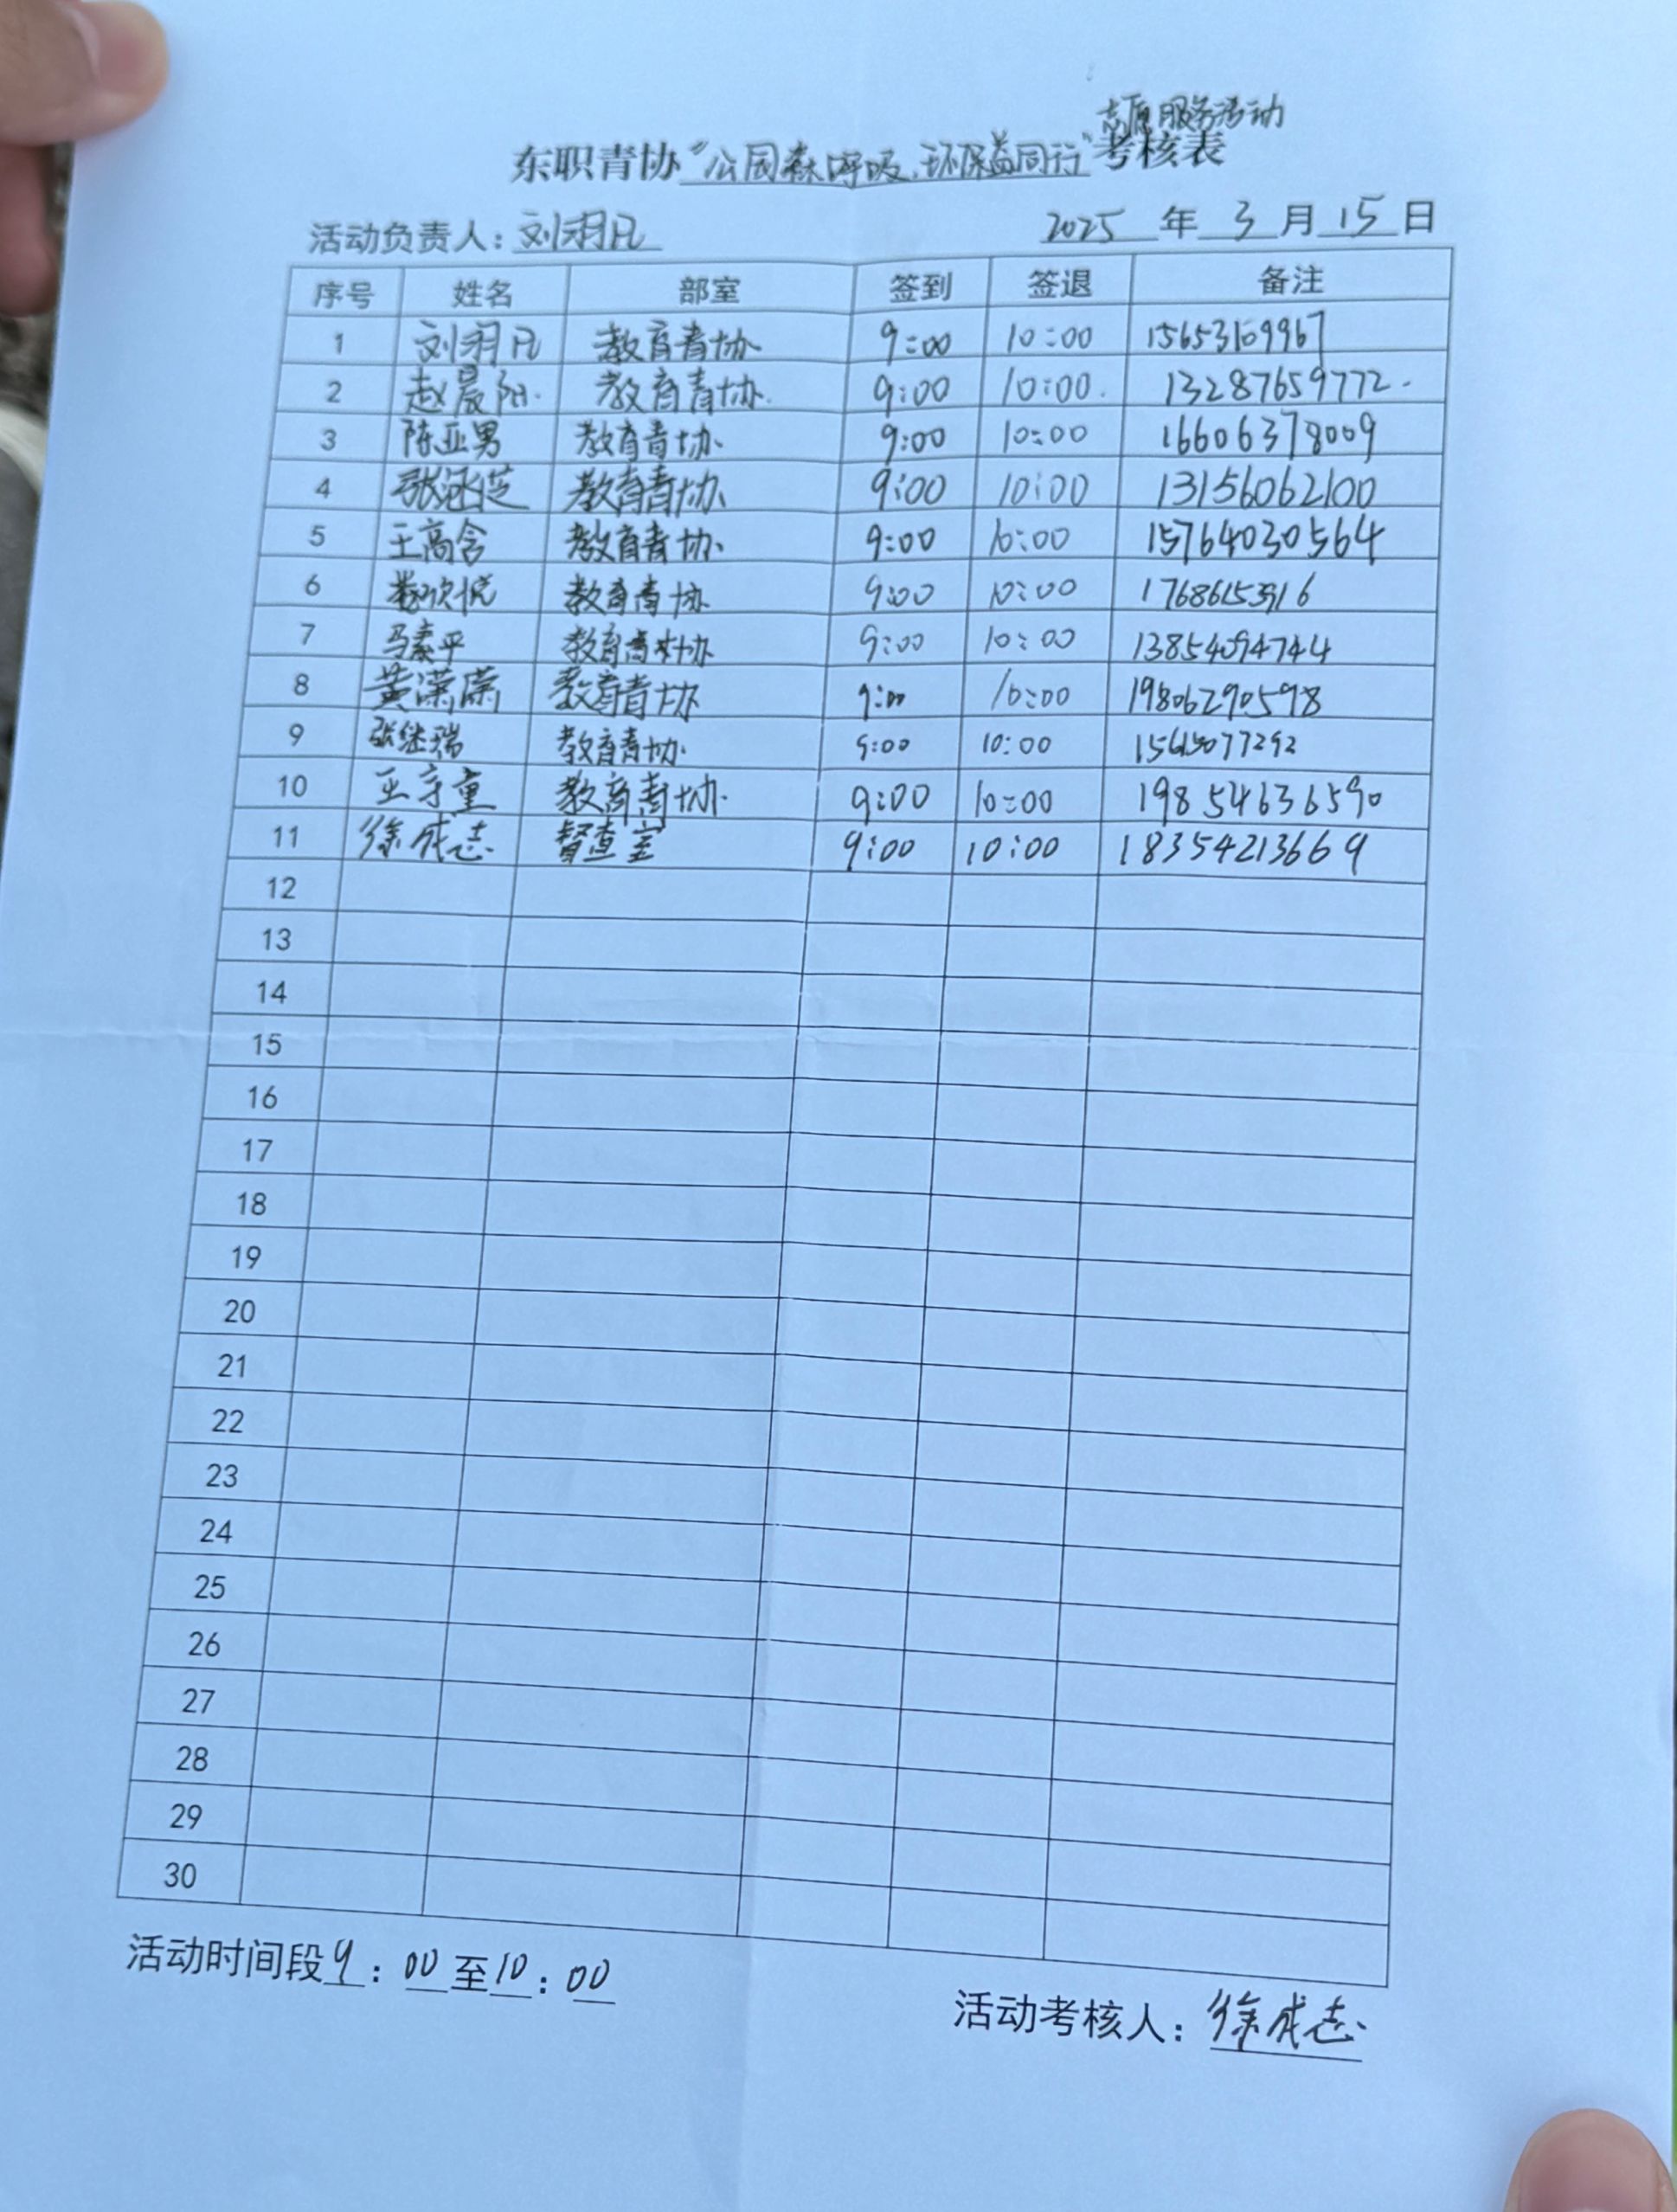 志愿服务活动
东职青协“公园森呼吸,环保益同行”考核表
活动负责人：刘羽凡 2025 年 3 月 15 日
序号 姓名 部室 签到 签退 备注
1 刘羽凡 教育青协 9:00 10:00 15653109967
2 赵晨阳 教育青协 9:00 10:00 13287659772
3 陈亚男 教育青协 9:00 10:00 16606378009
4 张涵芝 教育青协 9:00 10:00 13156062100
5 王高含 教育青协 9:00 10:00 15764030564
6 教育青协 9:00 10:00
7 马素平 教育青协 9:00 10:00 13854094744
8 黄潇潇 教育青协 9:00 10:00 19806290598
9 张继瑞 教育青协 9:00 10:00 15615077292
10 教育青协 9:00 10:00 19854636590
11 徐成志 督查室 9:00 10:00 18354213669
12
13
14
15
16
17
18
19
20
21
22
23
24
25
26
27
28
29
30
活动时间段9：00至10：00
活动考核人：徐成志